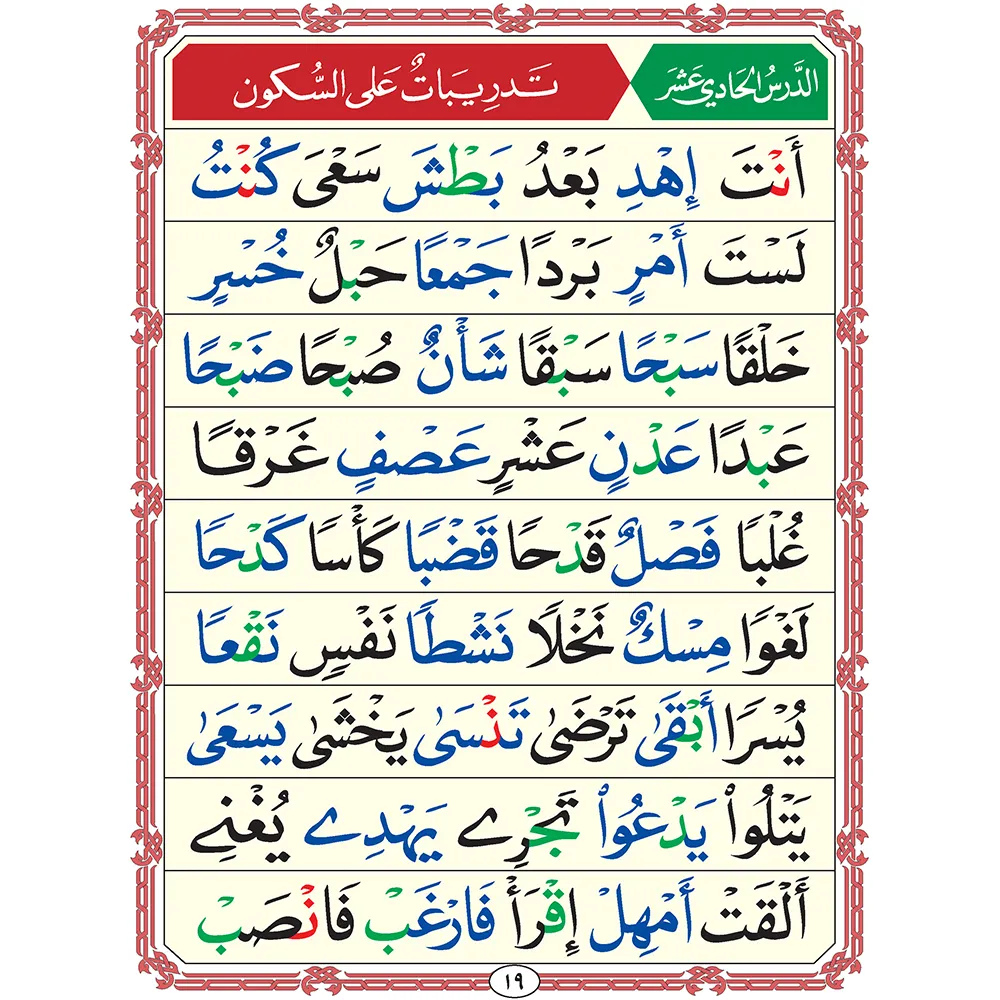 الدَّرْسُ الحَادِي عَشَرَ
تَدْرِيبَاتٌ عَلَى السُّكُون
أَنْتَ إِهْدِ بَعْدُ بَطْشَ سَعْىَ كُنْتُ
لَسْتَ أَمْرٍ بَرْدًا جَمْعًا حَبْلٌ خُسْرٍ
خَلْقًا سَبْحًا سَبْقًا شَأْنٌ صُبْحًا ضَبْحًا
عَبْدًا عَدْنٍ عَشْرٍ عَصْفٍ غَرْقًا
غُلْبًا فَصْلٌ قَدْحًا قَضْبًا كَأْسًا كَدْحًا
لَغْوًا مِسْكٌ نَخْلًا نَشْطًا نَفْسٍ نَقْعًا
يُسْرًا أَبْقَىٰ تَرْضَىٰ تَنْسَىٰ يَخْشَىٰ يَسْعَىٰ
يَتْلُواْ يَدْعُواْ تَجْرِے يَهْدِے يُغْنِے
أَلْقَتْ أَمْهِلْ إِقْرَأْ فَارْغَبْ فَانْصَبْ
١٩